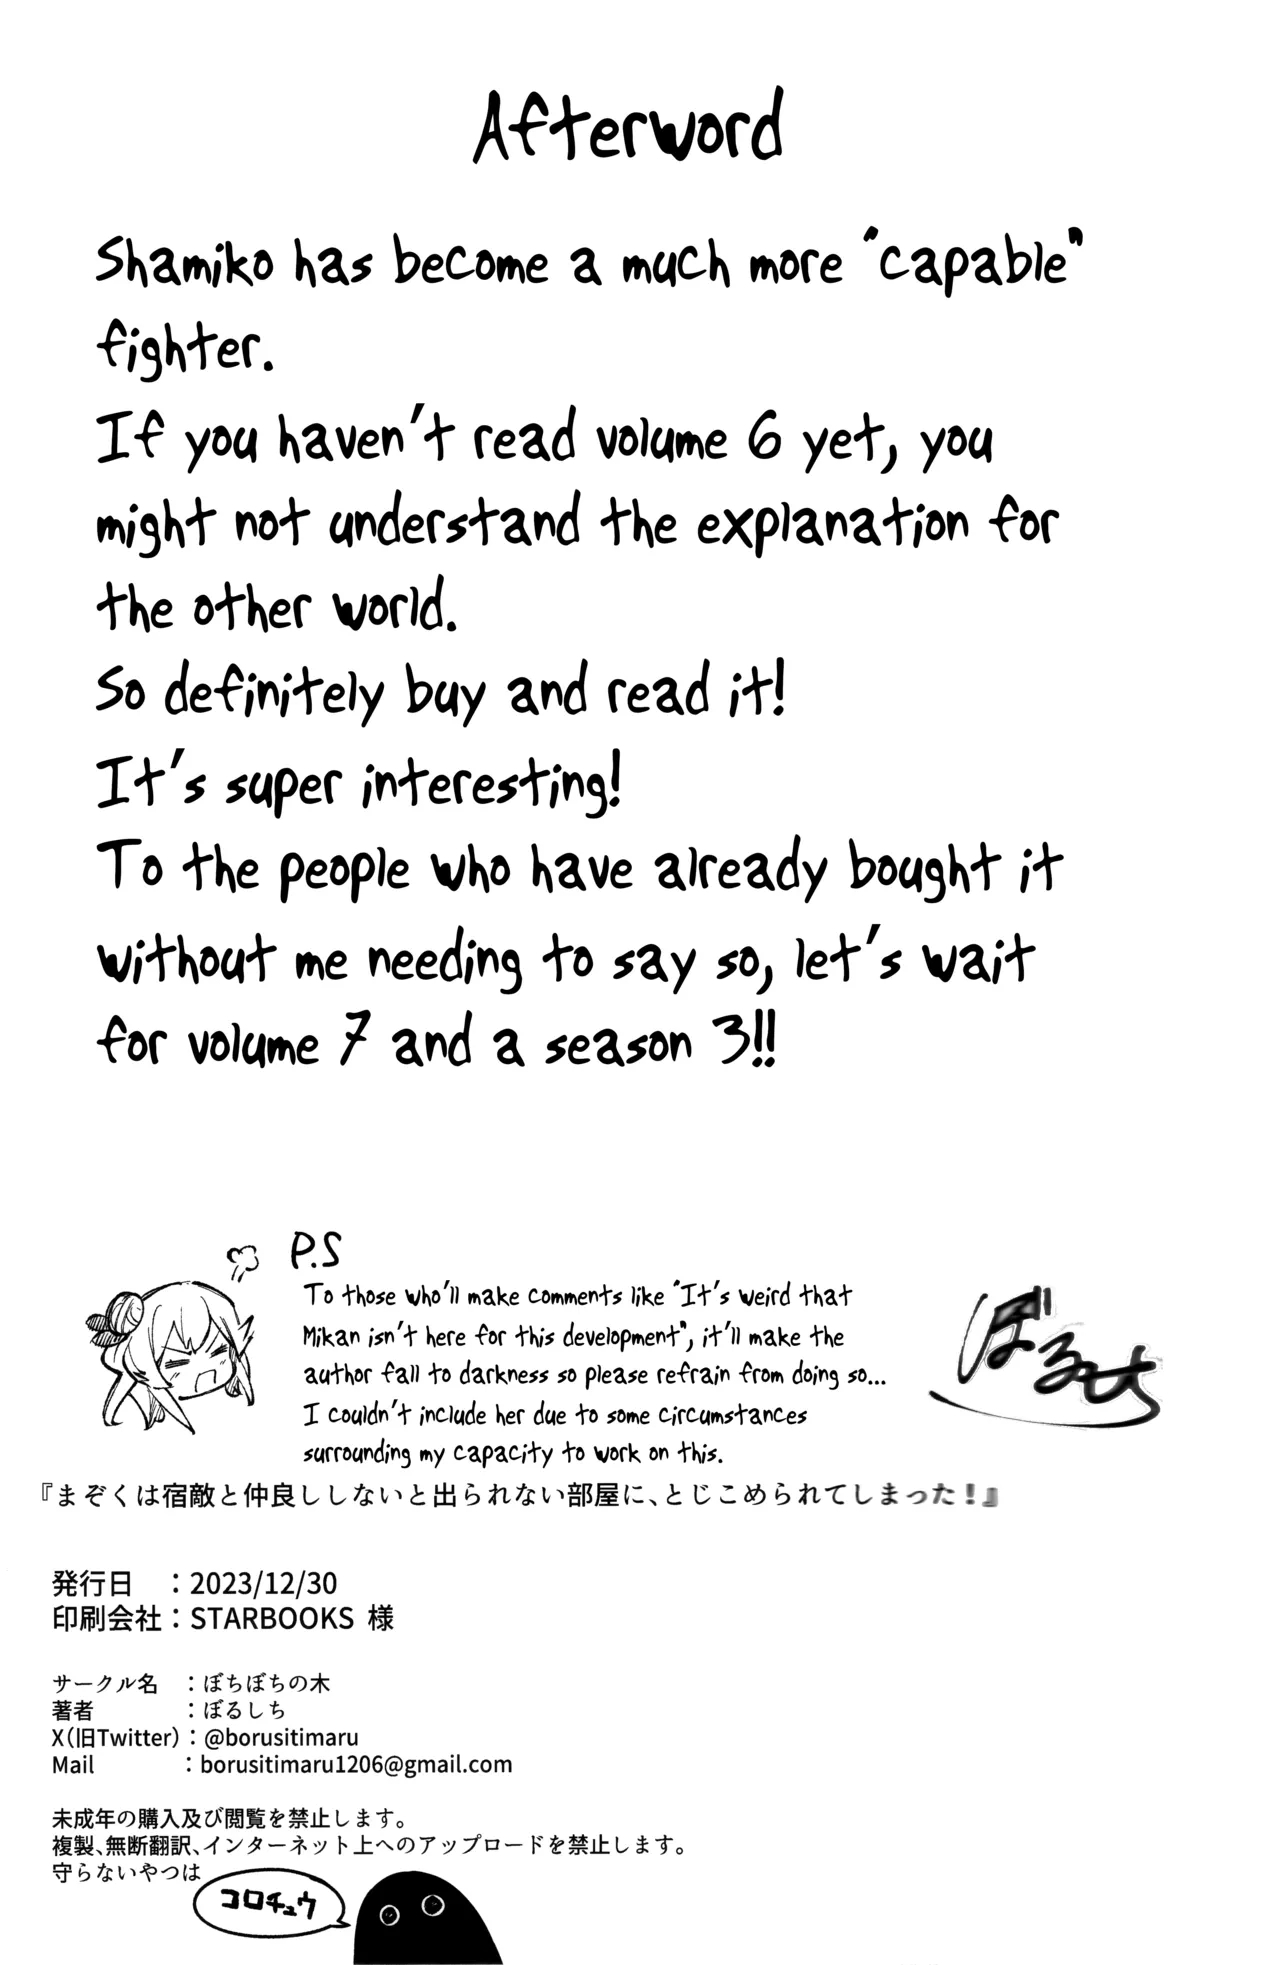 Afterword
Shamiko has become a much more "capable"
fighter.
If you haven't read volume 6 yet, you
might not understand the explanation for
the other world.
So definitely buy and read it!
It's super interesting!
To the people who have already bought it
without me needing to say so, let's wait
for volume 7 and a season 3!!
P.S
To those who'll make comments like "It's weird that
Mikan isn't here for this development", it'll make the
author fall to darkness so please refrain from doing so...
I couldn't include her due to some circumstances
surrounding my capacity to work on this.
ぼるしち
『まぞくは宿敵と仲良ししないと出られない部屋に、とじこめられてしまった！』
発行日　：2023/12/30
印刷会社：STARBOOKS 様
サークル名　：ぼちぼちの木
著者　：ぼるしち
X（旧Twitter）：@borusitimaru
Mail　：borusitimaru1206@gmail.com
未成年の購入及び閲覧を禁止します。
複製、無断翻訳、インターネット上へのアップロードを禁止します。
守らないやつは
コロチュウ